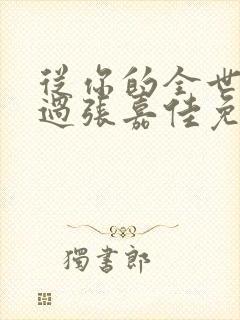 從你的全世
過張嘉佳免
獨書郎